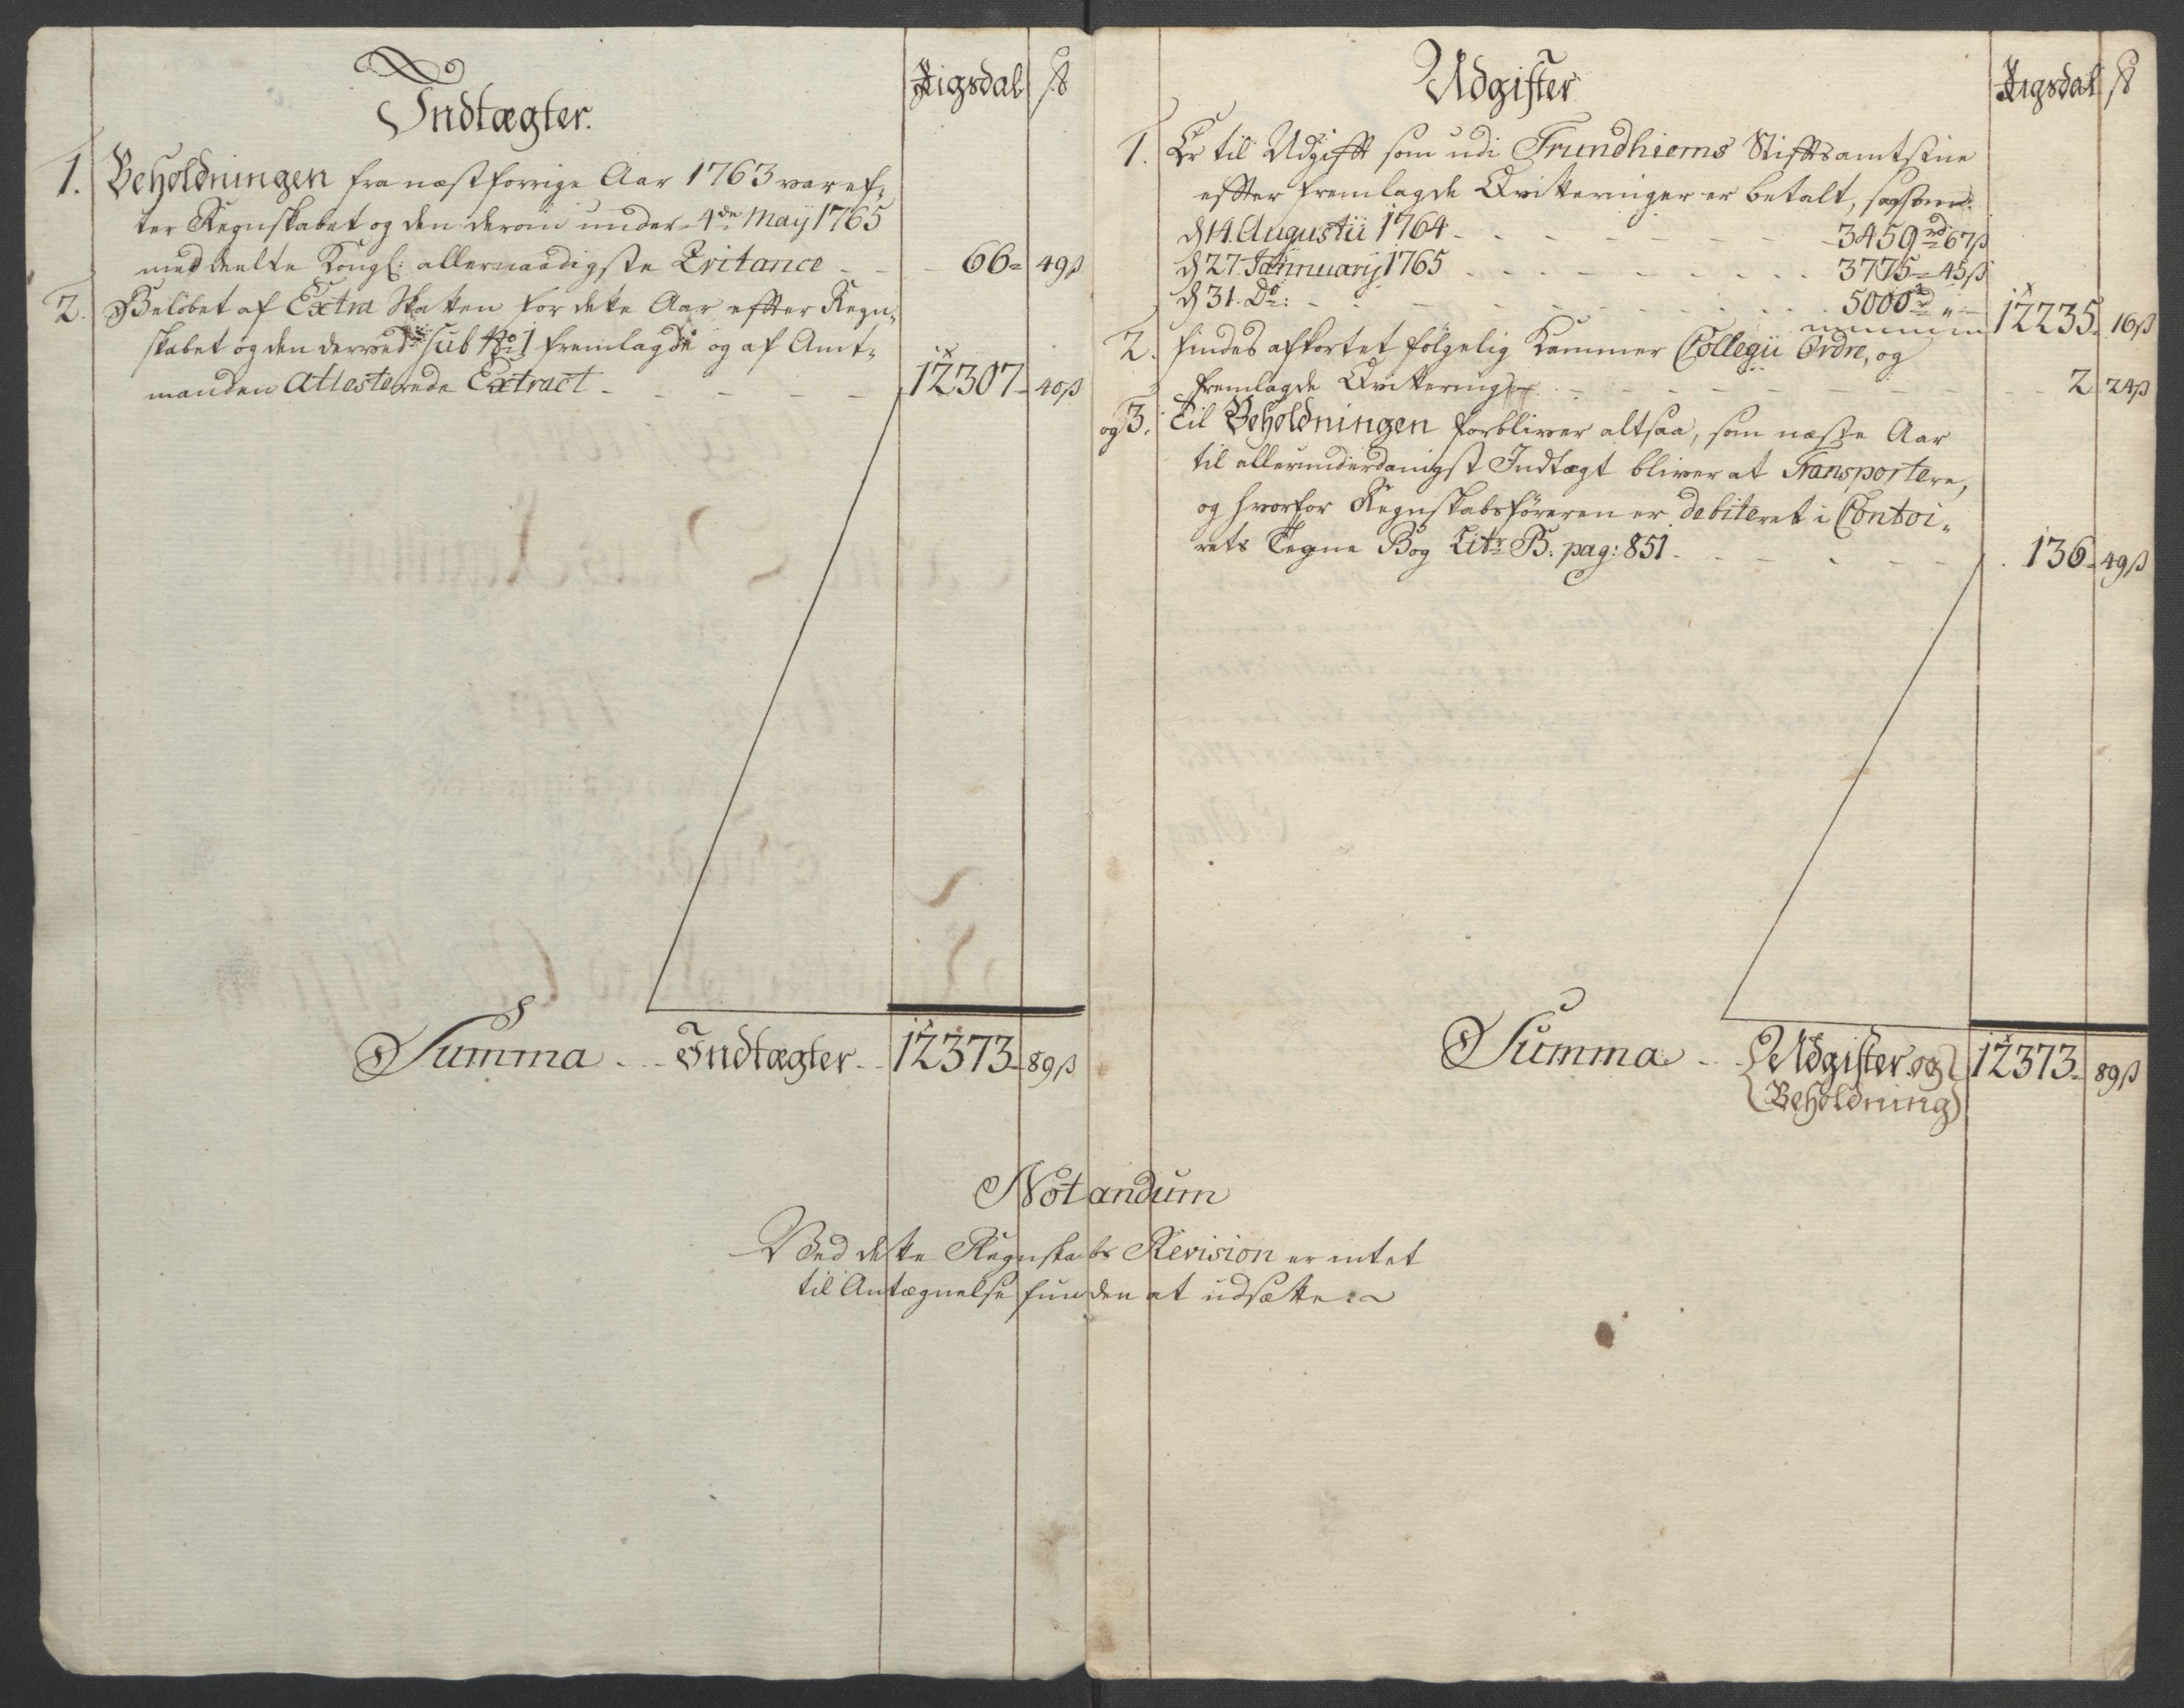 Indtægter.
Rigsdal ß
1. Beholdningen fra næstforrige Aar 1763 var ef-
ter Regnskabet og den derom under 4de Maij 1765
meddeelte Kongl: allernaadigste Qvitance - - 66 - 49 ß
2. Beløbet af Extra Skatten for dette Aar effter Regn-
skabet og den derved sub No 1 fremlagde og af Amt-
manden Attesterede Extract - - - - - 12307 - 40 ß
Summa - - Indtægter - - 12373 - 89 ß
Udgifter
Rigsdal ß
1. Er til Udgifft som udi Trundhiems Stifftsamtstue
effter fremlagde Qvitteringer er betalt, saasom:
d 14. Augustii 1764 - - - 3459 rd 67 ß
d 27. Jannuarij 1765 - - - 3775 - 45 ß
d 31. Do: - - - 5000 rd " - 12235 - 16 ß
2. findes afkortet følgelig Kammer Collegii Ordre, og
fremlagde Qvittering - - - 2 24 ß
og 3. Til Beholdningen forbliver altsaa, som næste Aar
til allerunderdanigst Indtægt bliver at Transportere,
og hvorfor Regnskabsføreren er debiteret i Contoi-
rets Tegne Bog Litr B. pag: 851 - - - 136 - 49 ß
Summa - - Udgifter og 12373 - 89 ß
Beholdning
Notandum
Ved dette Regnskabs Revision er intet
til Antægnelse funden at udsætte.